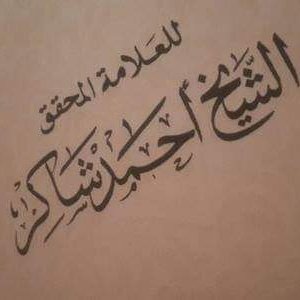 للعلامة المحقق
الشيخ أحمد شاكر